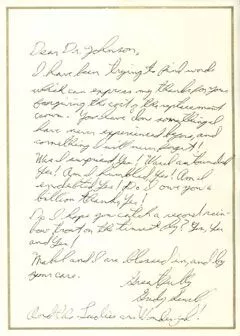 Dear Dr. Johnson,
I have been trying to find words
which can express my thanks for you
forgiving the cost of the replacement
crown. You have done something I
have never experienced before, and
something I will never forget!
Was I surprised, Yes! Was I astounded,
Yes! Am I humbled, Yes! Am I
indebted, Yes! Do I owe you a
billion thanks, Yes!
Do I hope you catch a record rain-
bow trout on the  Yes, Yes
and Yes!
Mabel and I are blessed in, and by
your care.